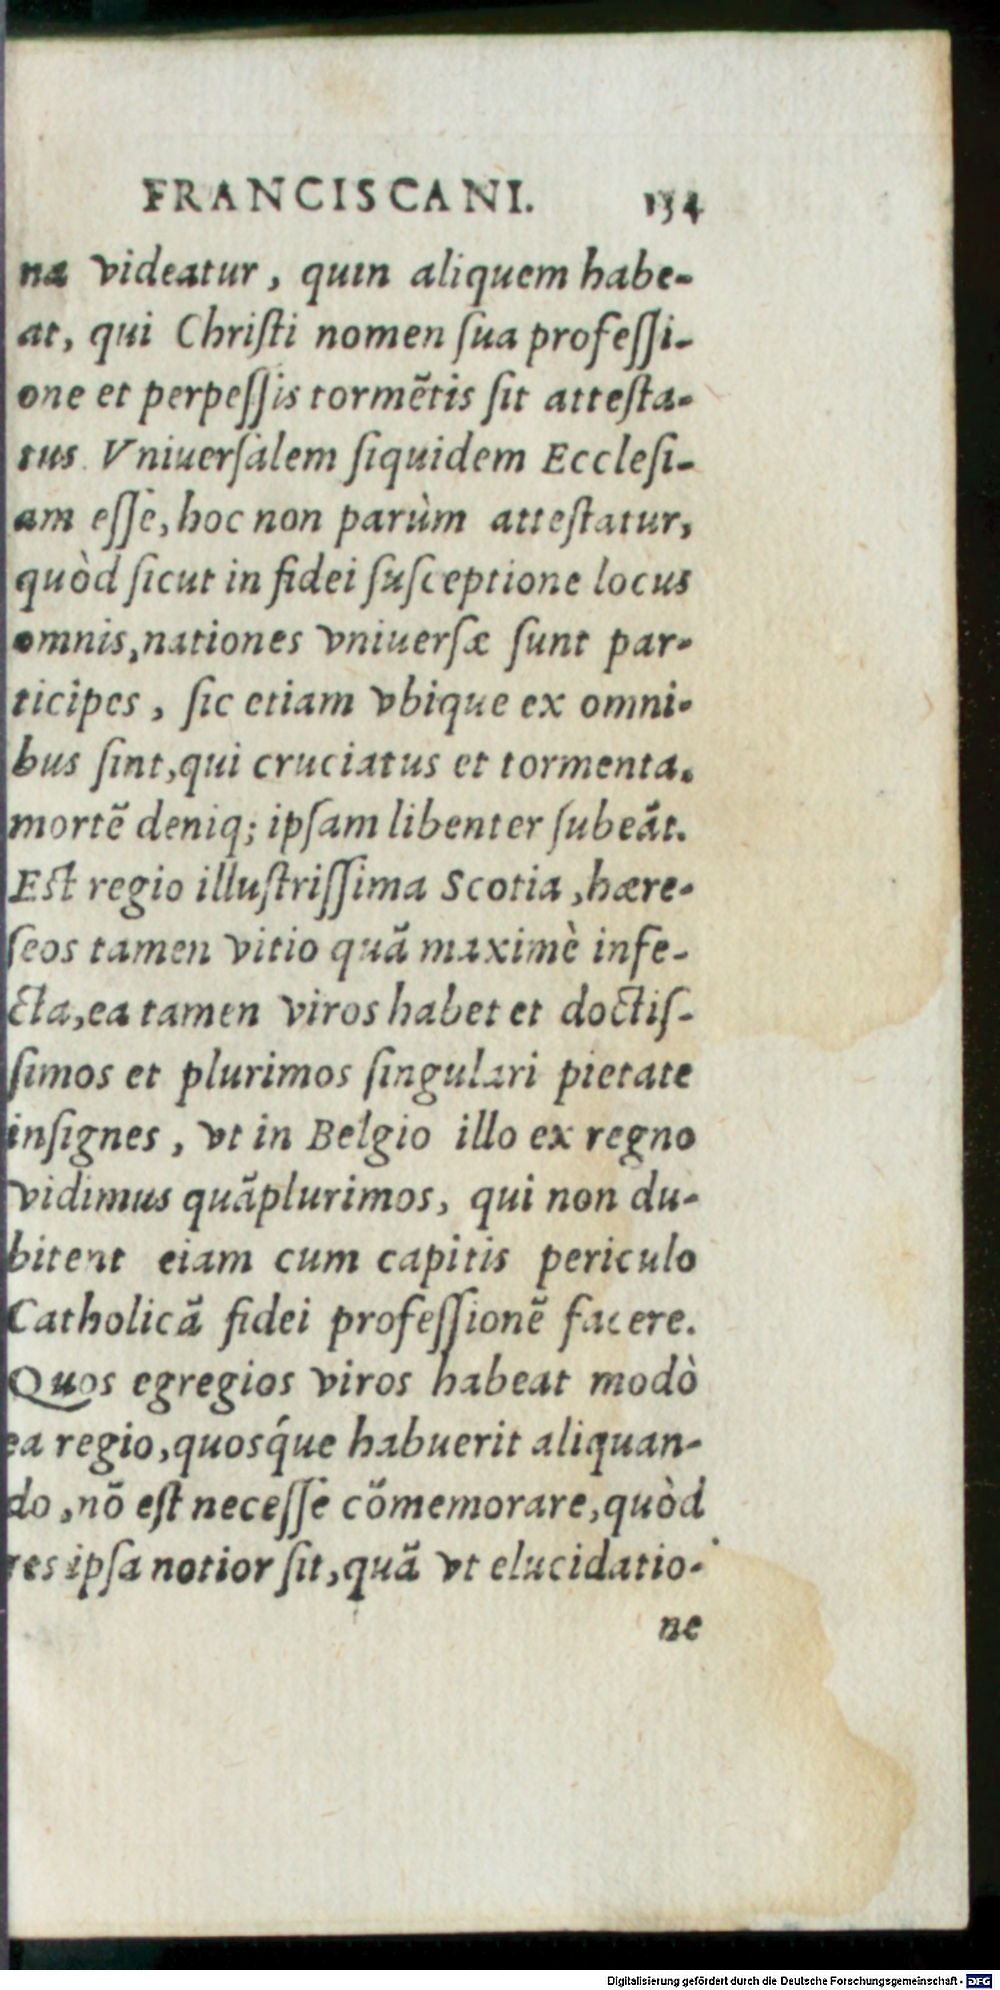 FRANCISCANI. 134
na videatur, quin aliquem habe-
at, qui Chriſti nomen ſua profeſſi-
one et perpeſſis tormẽtis ſit atteſta-
tus. Vniuerſalem ſiquidem Eccleſi-
am eſſe, hoc non parùm atteſtatur,
quòd ſicut in fidei ſuſceptione locus
omnis, nationes vniuerſæ ſunt par-
ticipes, ſic etiam vbique ex omni-
bus ſint, qui cruciatus et tormenta,
mortẽ deniq; ipſam libenter ſubeãt.
Eſt regio illuſtriſſima Scotia, hære-
ſeos tamen vitio quã maximè infe-
cta, ea tamen viros habet et doctiſ-
ſimos et plurimos ſingulari pietate
inſignes, vt in Belgio illo ex regno
vidimus quãplurimos, qui non du-
bitent eiam cum capitis periculo
Catholicã fidei profeſſionẽ facere.
Quos egregios viros habeat modò
ea regio, quosq́ue habuerit aliquan-
do, nõ eſt neceſſe cõmemorare, quòd
res ipſa notior ſit, quã vt elucidatio-
ne
Digitalisierung gefördert durch die Deutsche Forschungsgemeinschaft - DFG